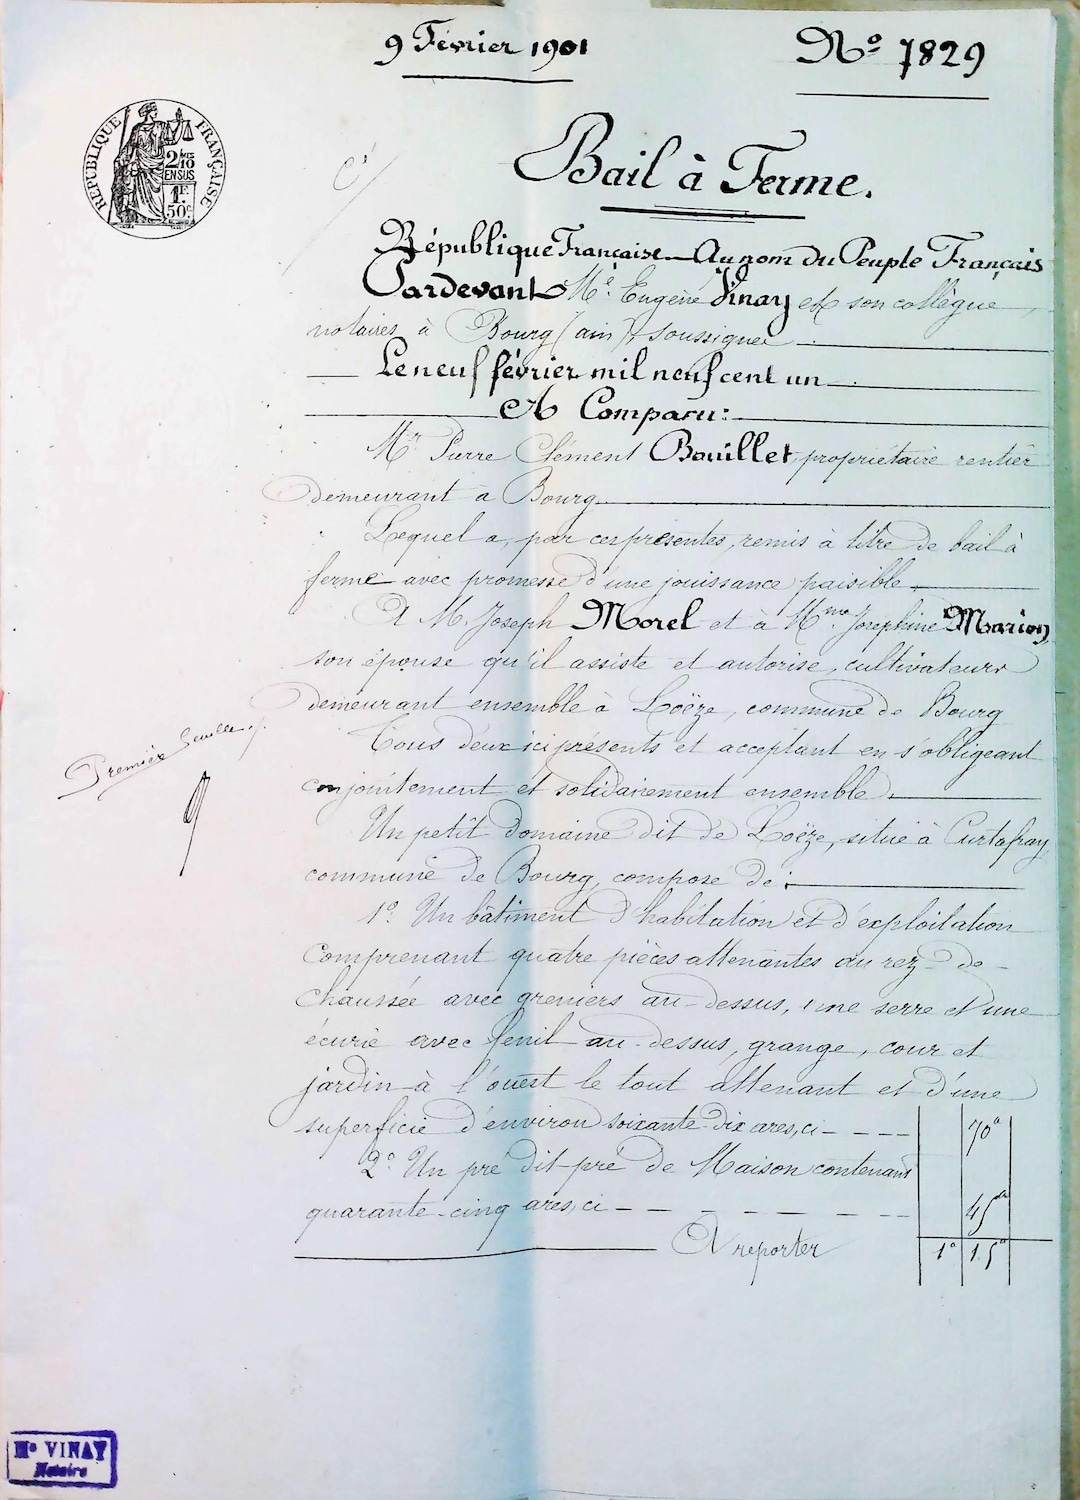 9 Février 1901
Nº 7829
RÉPUBLIQUE FRANÇAISE
2/10 EN SUS
1F. 50c
Bail à Ferme.
République Française _ Au nom du Peuple Français
Pardevant Me. Eugène Vinay et son collègue,
notaires à Bourg (ain) soussignés
Le neuf février mil neuf cent un
A Comparu:
Mr Pierre Clément Bouillet, propriétaire rentier
demeurant à Bourg
Lequel a, par ces présentes, remis à titre de bail à
ferme avec promesse d'une jouissance paisible
A M. Joseph Morel et à Mme Josephine Marion,
son épouse qu'il assiste et autorise, cultivateurs
demeurant ensemble à Loëze, commune de Bourg
Tous deux ici présents et acceptant en s'obligeant
conjointement et solidairement ensemble.
Première feuille
Un petit domaine dit de Loëze, situé à Curtafray,
commune de Bourg, composé de:
1º. Un bâtiment d'habitation et d'exploitation
comprenant quatre pièces attenantes au rez-de-
chaussée avec greniers au-dessus, une serre et une
écurie avec fenil au-dessus, grange, cour et
jardin à l'ouest le tout attenant et d'une
superficie d'environ soixante-dix ares, ci - - - - 70a
2º. Un pré dit pré de Maison contenant
quarante-cinq ares, ci - - - - - - - 45a
A reporter 1a 15a
Me VINAY
Notaire